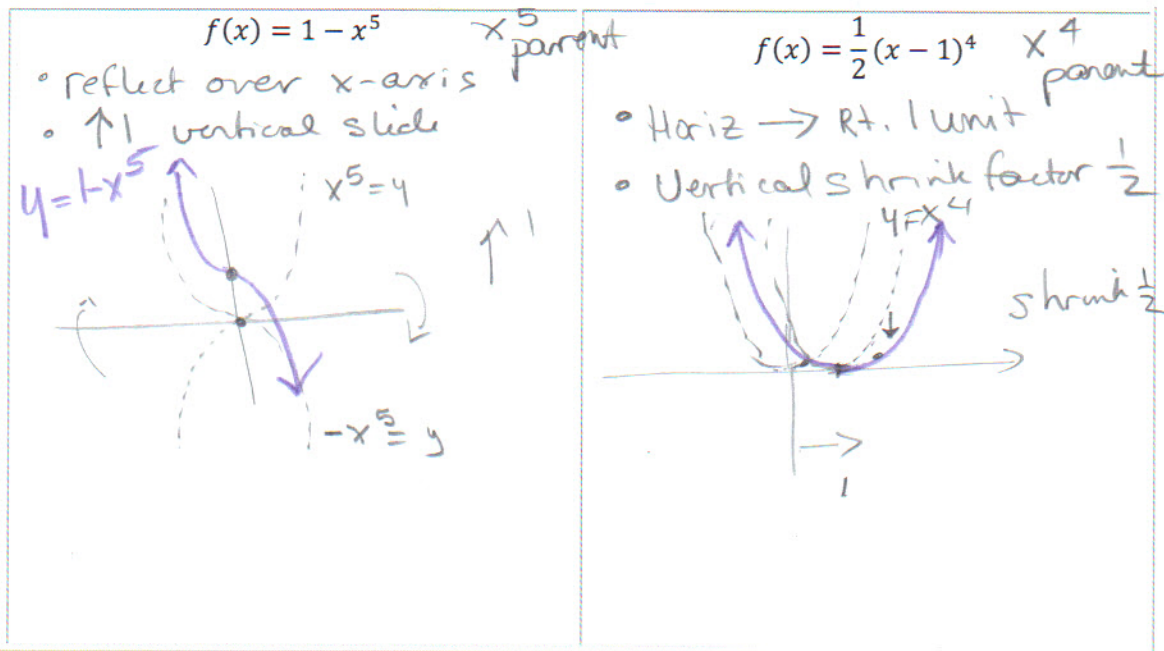 f(x) = 1 − x⁵
x⁵ parent
• reflect over x-axis
• ↑1 vertical slide
y = 1-x⁵
x⁵ = y
↑ 1
-x⁵ = y
f(x) = 1/2 (x − 1)⁴
x⁴ parent
• Horiz → Rt. 1 unit
• Vertical shrink factor 1/2
y = x⁴
shrink 1/2
→
1